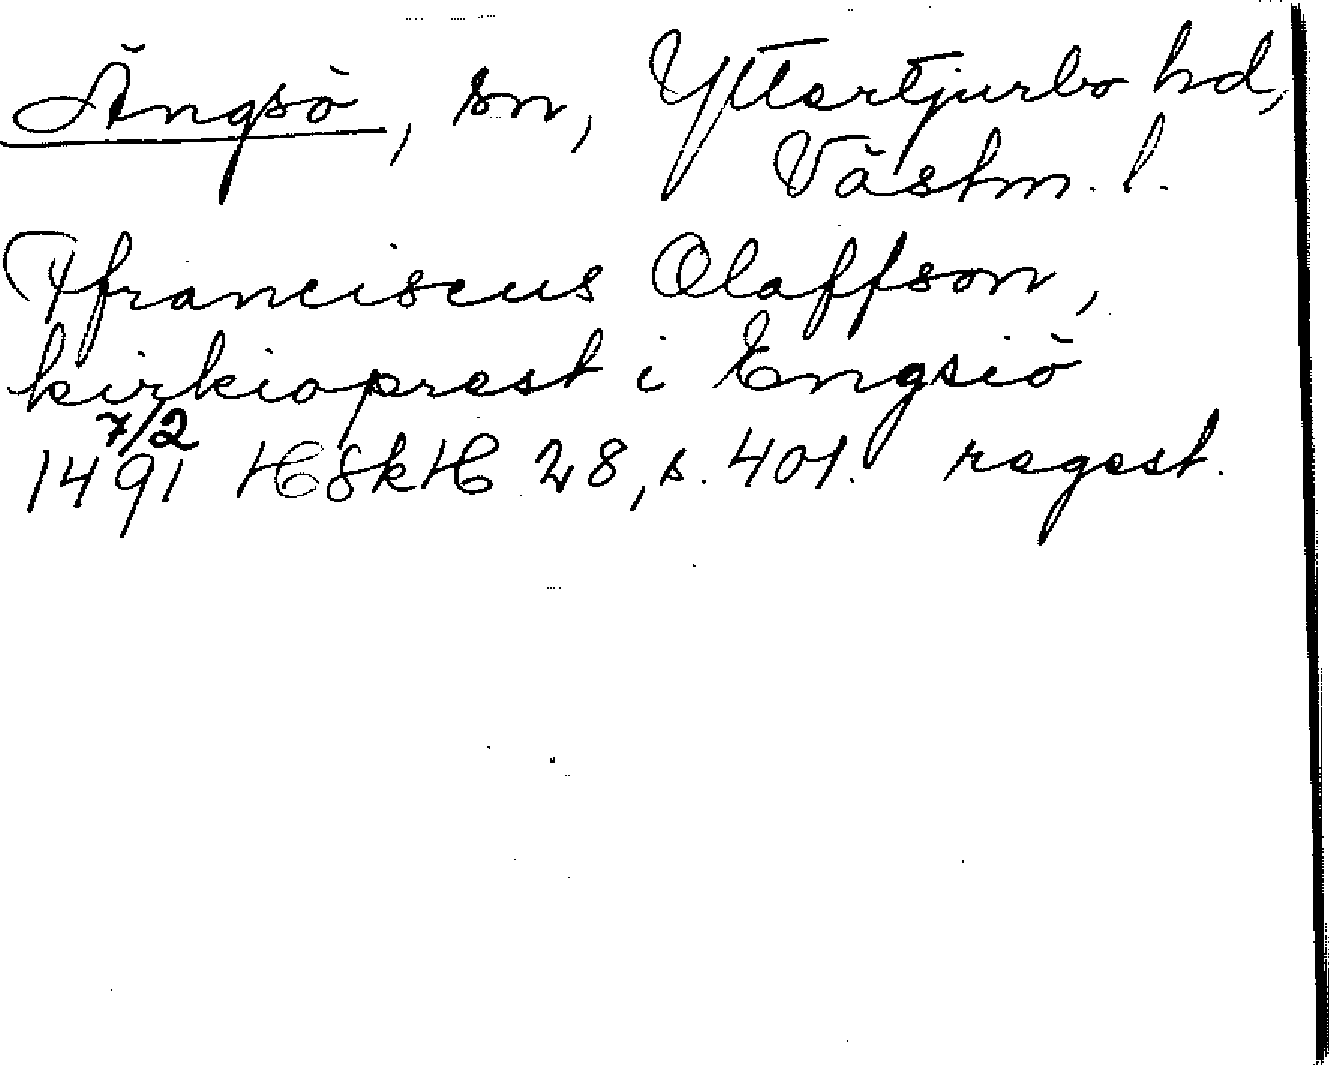 Ängsö, sn, Yttertjurbo hd,
Västm. l.
Ffranciscus Olaffson,
kirkioprest i Engsiö
7/2
1491 HSkH 28, s. 401. regest.